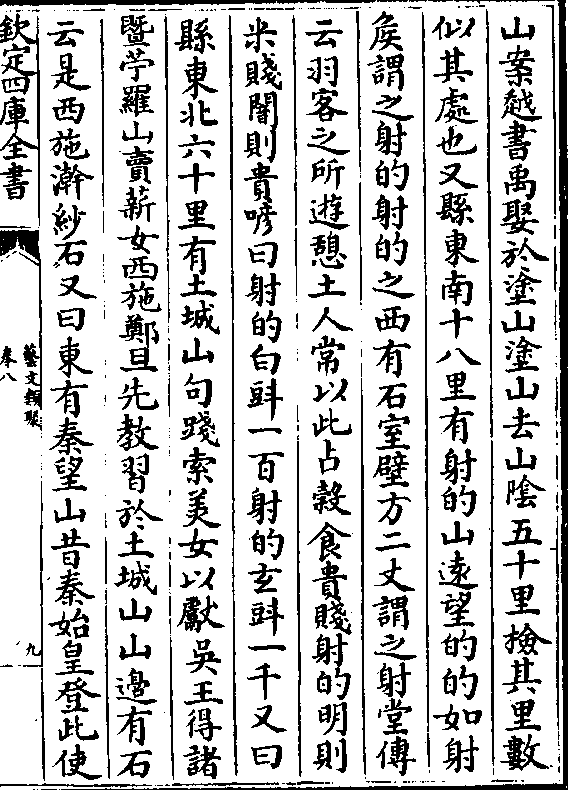 山案越書禹娶於塗山塗山去山隂五十里撿其里數
似其處也又縣東南十八里有射的山遠望的的如射
矦謂之射的射的之西有石室壁方二丈謂之射堂傳
云羽客之所遊憩土人常以此占穀食貴賤射的明則
米賤闇則貴喭曰射的白斛一百射的玄斛一千又曰
縣東北六十里有土城山句踐索美女以獻吳王得諸
暨苧羅山賣薪女西施鄭旦先教習於土城山山邊有石
云是西施澣紗石又曰東有秦望山昔秦始皇登此使
欽定四庫全書
藝文類聚
卷八
九